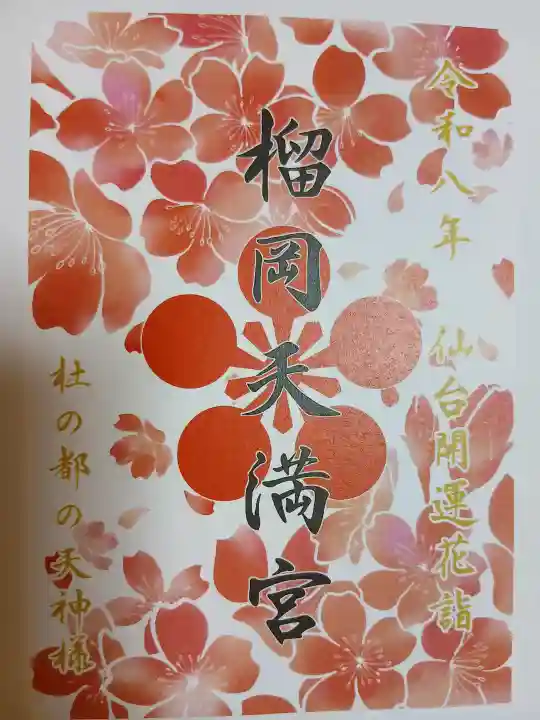 令和八年 仙台開運花詣
榴岡天満宮
杜の都の天神様